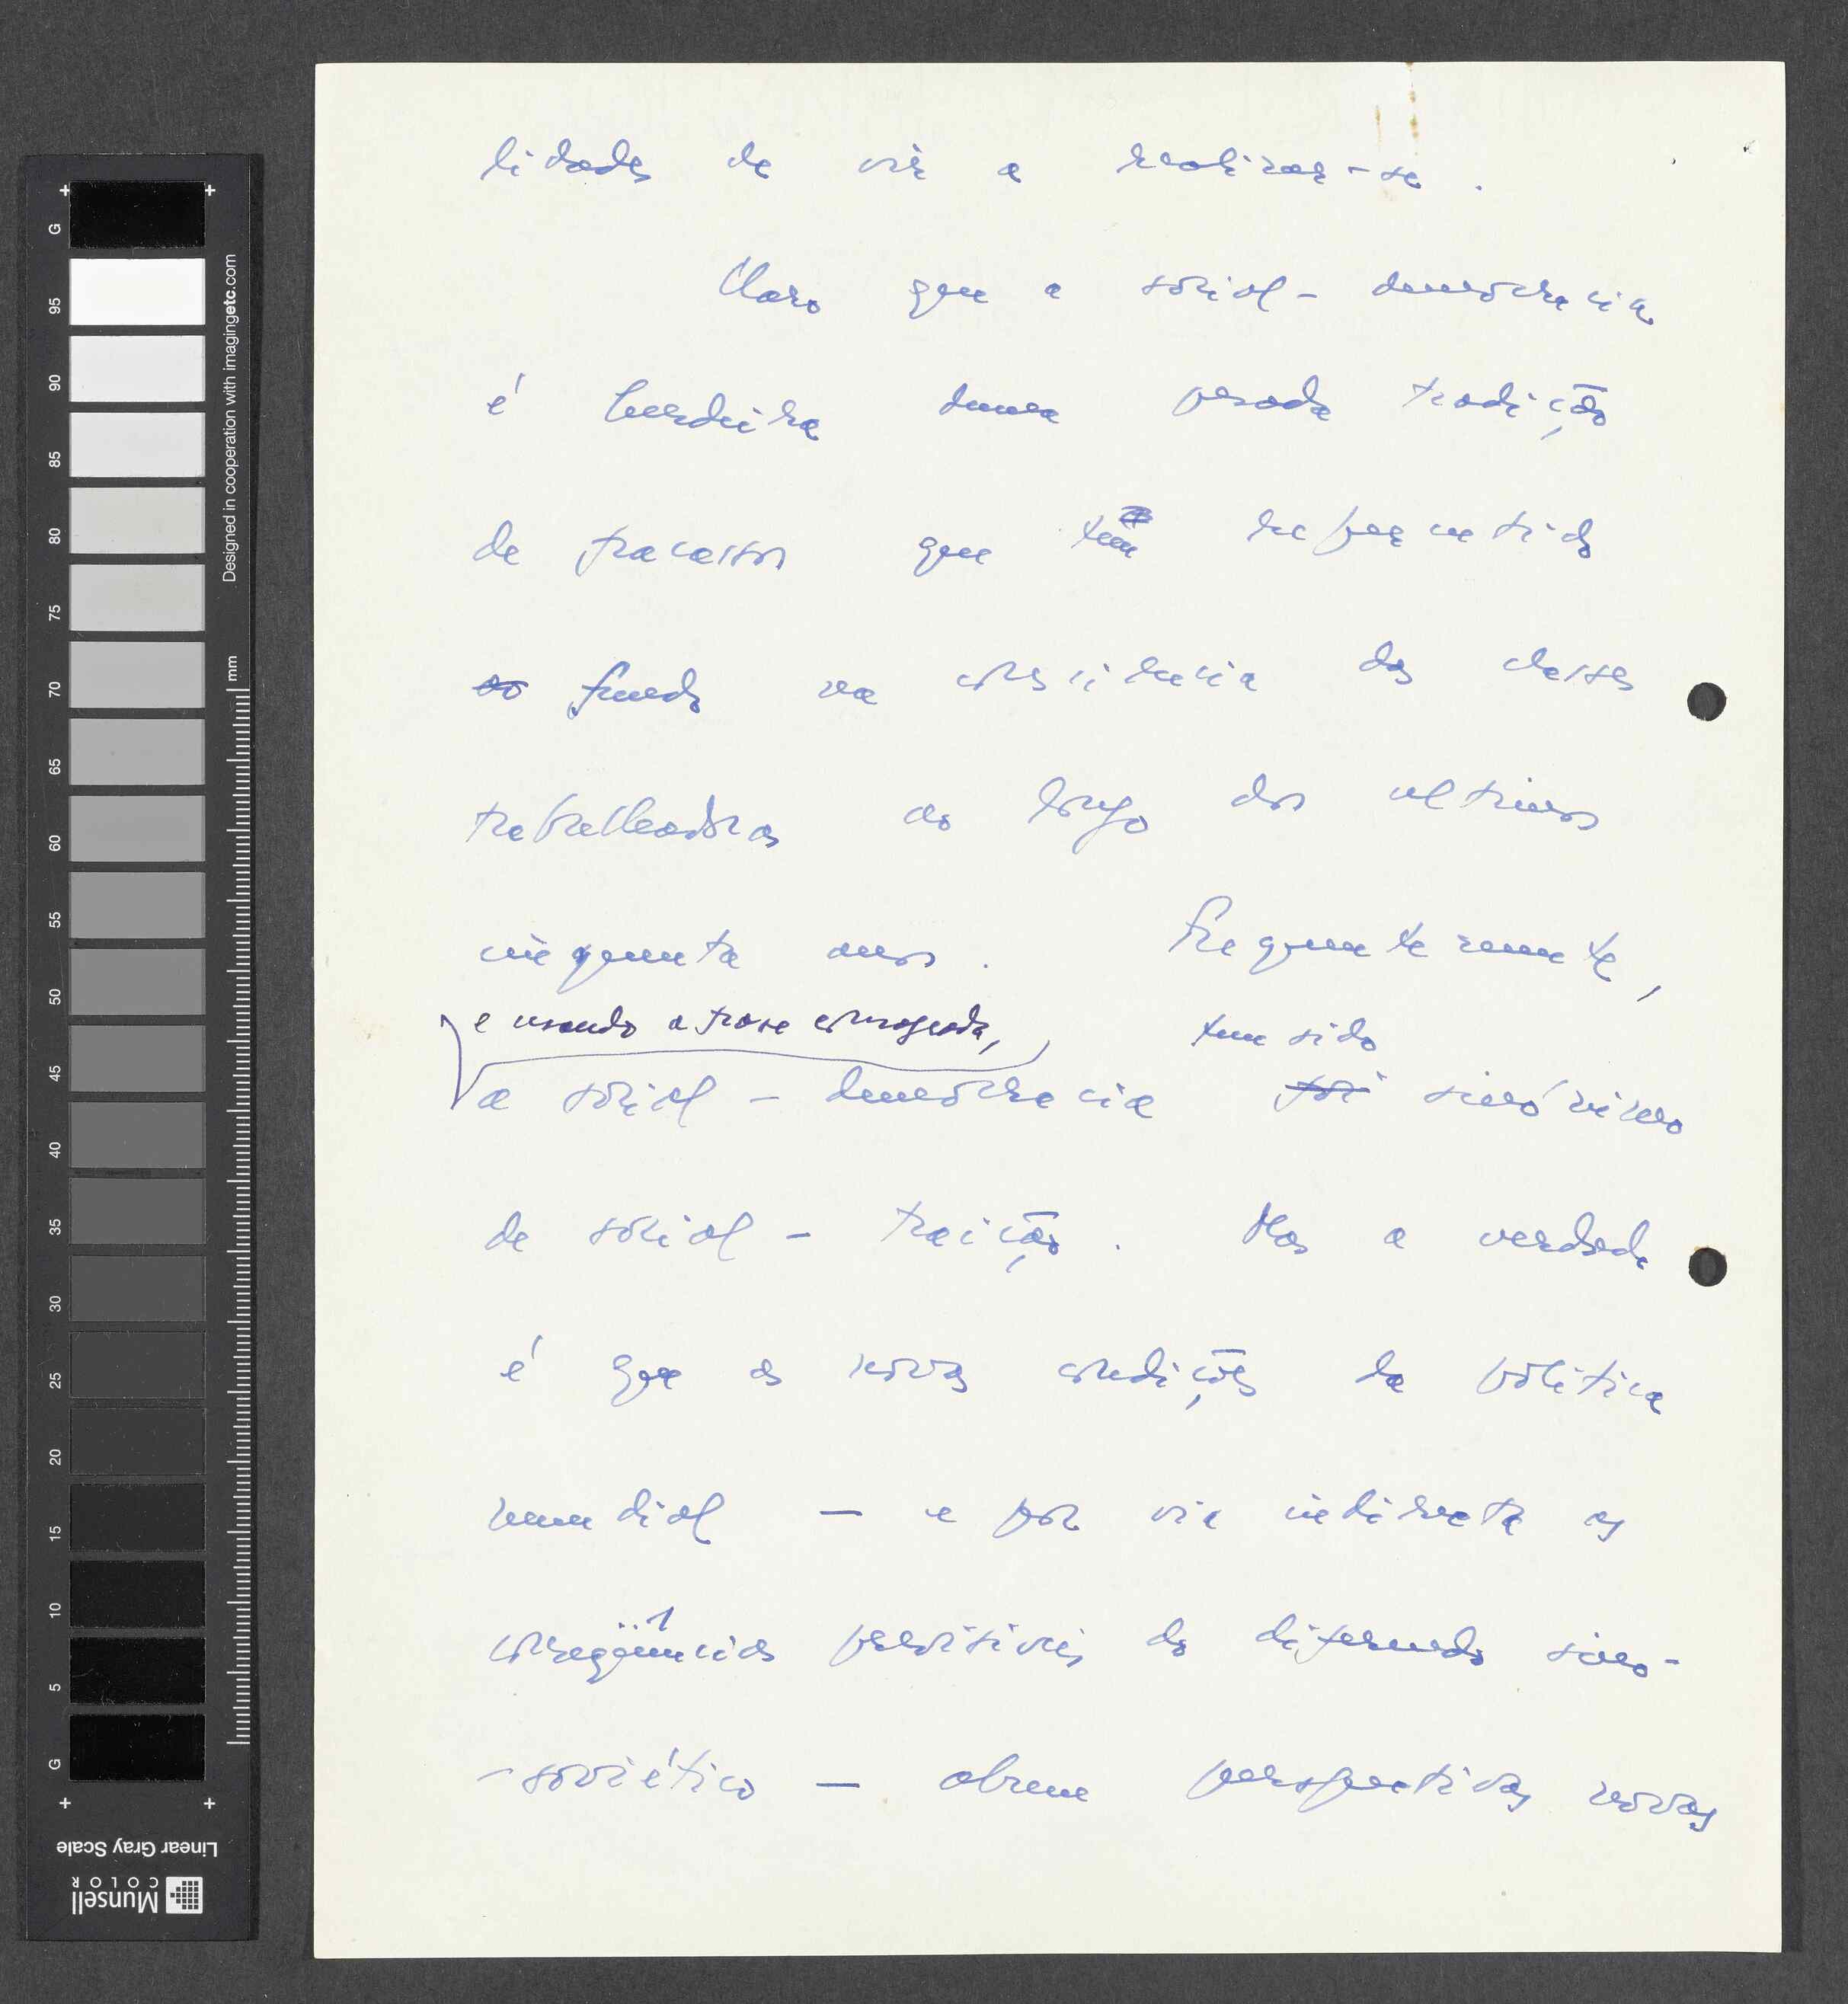 lidades de vir a realizar-se.
Claro que a social-democracia
é herdeira duma pesada tradição
de fracassos que têm repercutido
ao fundo na consciência das classes
trabalhadoras ao longo dos ultimos
cinquenta anos. Frequentemente,
e usando a frase consagrada,
tem sido
a social-democracia foi sinónimo
de social-traição. Mas a verdade
é que as novas condições da política
mundial — e por via indirecta as
conseqüências previsiveis do diferendo sino-
-soviético — abrem perspectivas novas
G
95
90
85
80
75
70
65
60
55
50
45
40
35
30
25
20
15
10
5
G
mm
Designed in cooperation with imagingetc.com
Linear Gray Scale
Munsell
COLOR